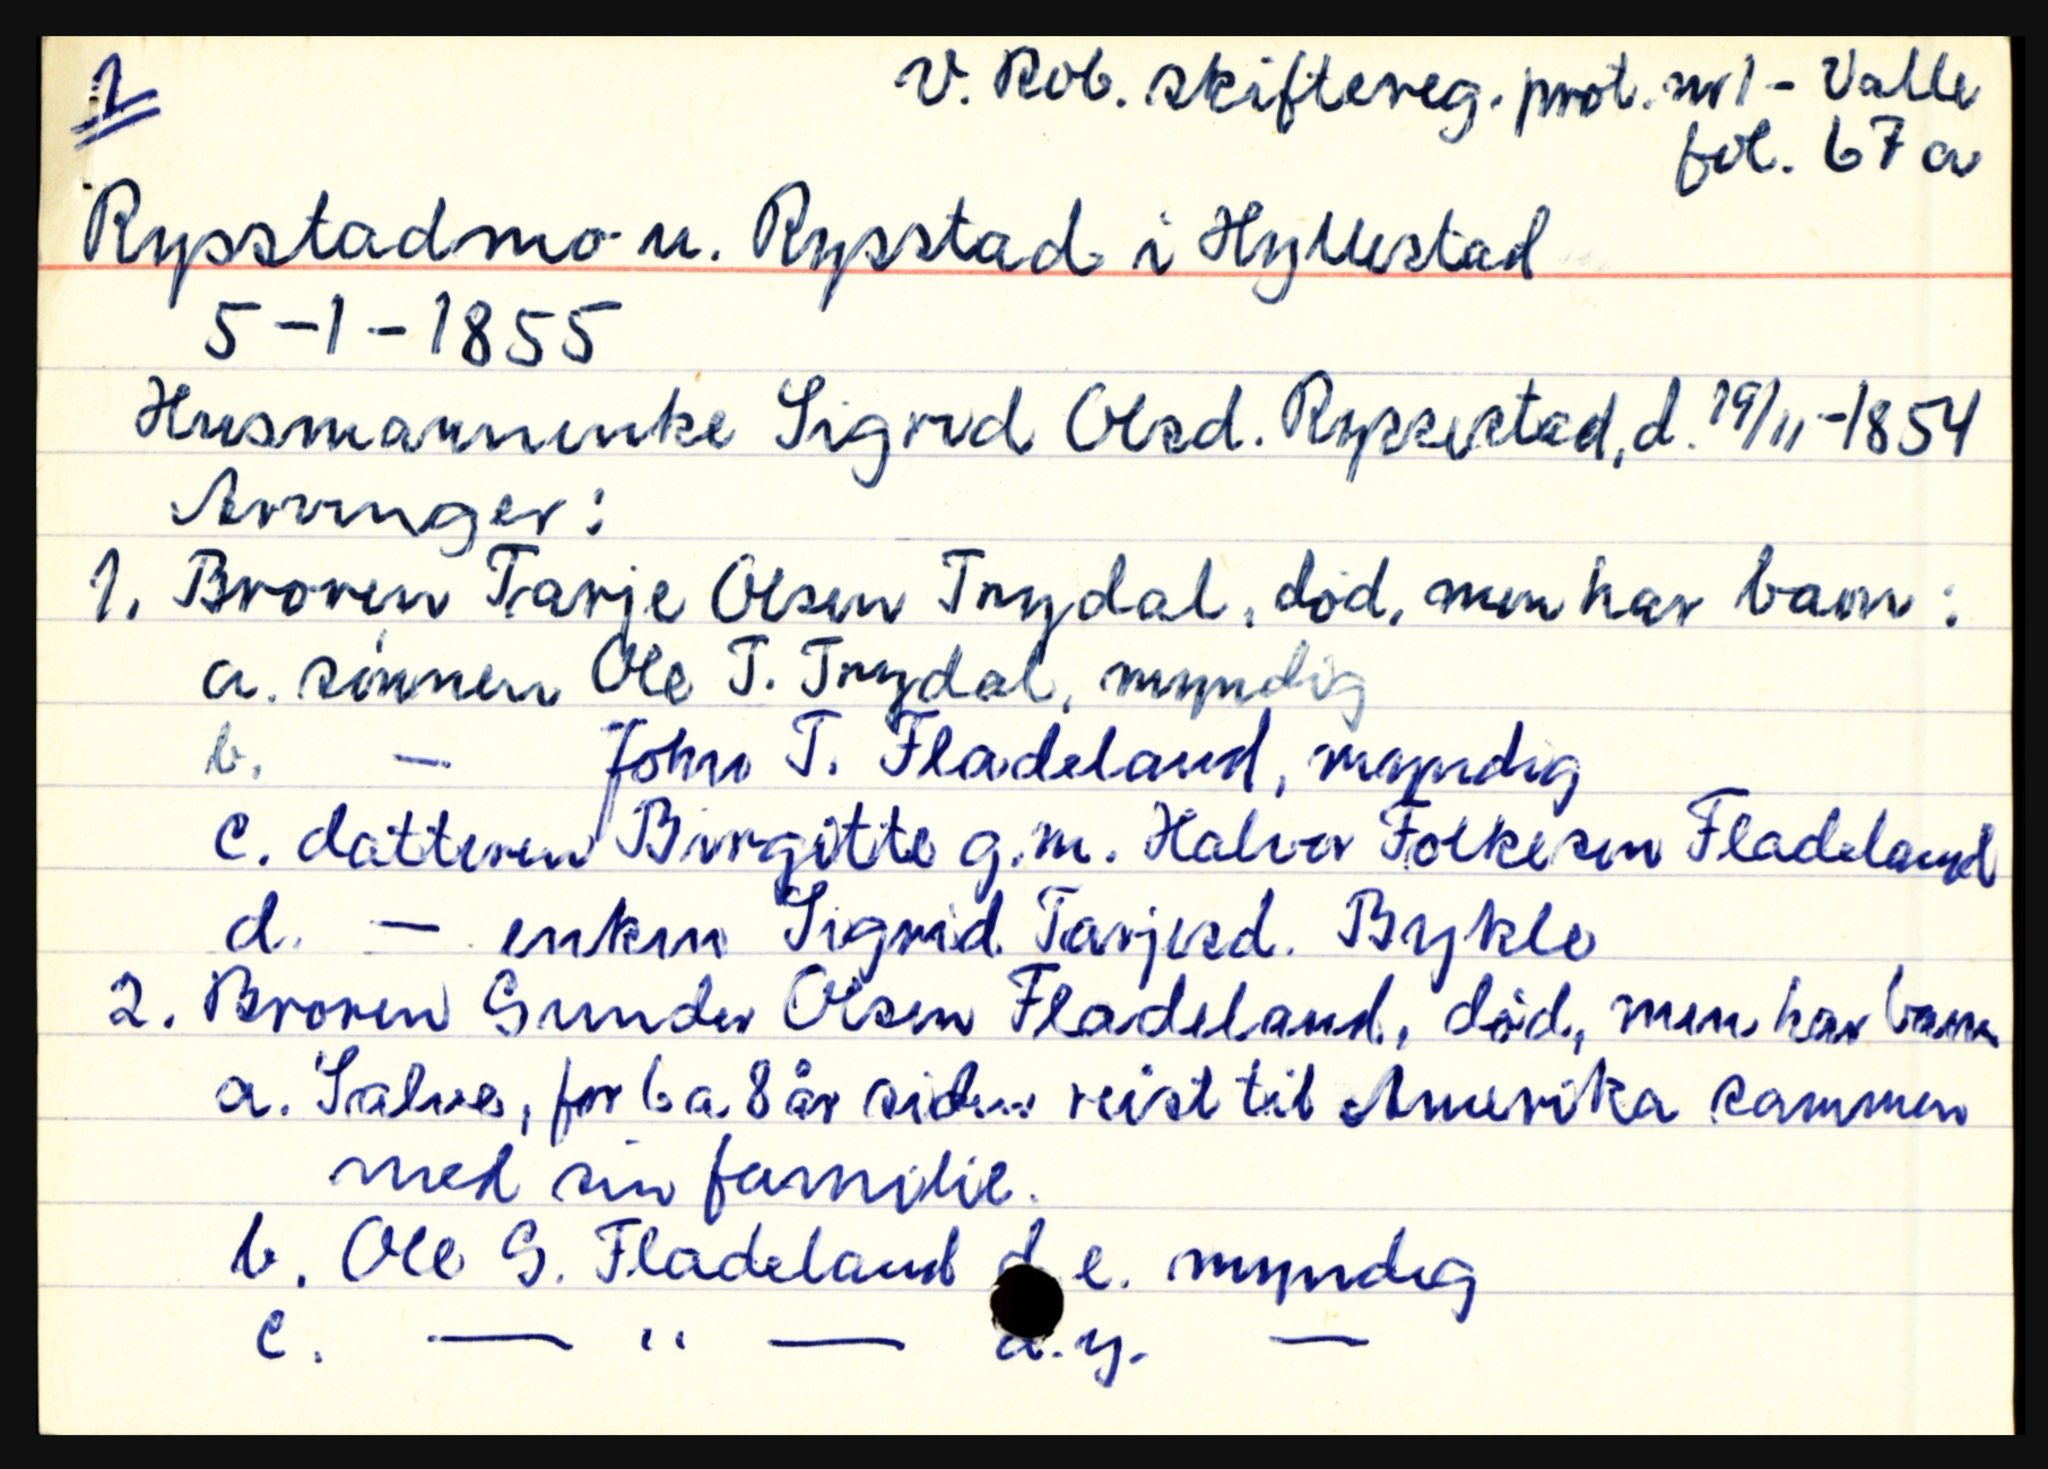 1
V. Rob. skiftereg. prot. nr 1 - Valle
fol. 67a
Rysstadmo u. Rysstad i Hyllestad
5-1-1855
Husmannenke Sigrid Olsd. Ryssestad, d. 19/11-1854
Arvinger:
1. Broren Tarje Olsen Trydal, død, men har barn:
a. sønnen Ole T. Trydal, myndig
b. — John T. Fladeland, myndig
c. datteren Birgitte g.m. Halvor Folkesen Fladeland
d. — enken Sigrid Tarjesd. Bykle
2. Broren Gunder Olsen Fladeland, død, men har barn
a. Salve, for 6 a 8 år siden reist til Amerika sammen
med sin familie.
b. Ole G. Fladeland d.e. myndig
c. — " — d.y. —